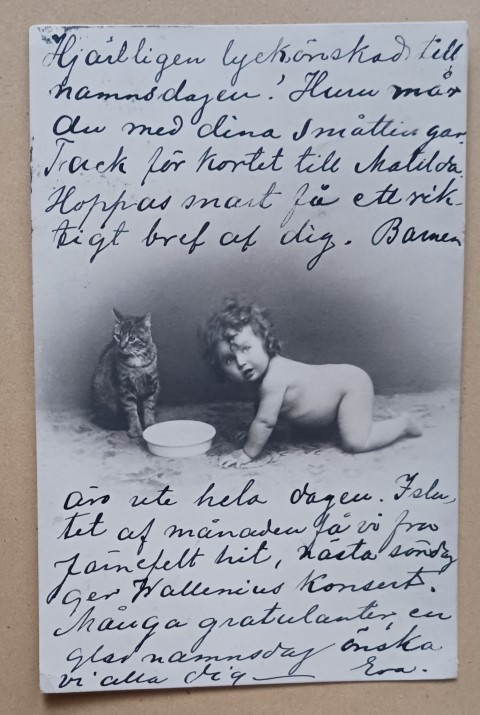 Hjärlligen lyckönskad till
namnsdagen! Huru mår
du med dina småttingar.
Tack för kortet till Matilda.
Hoppas snart få ett rik-
tigt bref af dig. Barnen
äro ute hela dagen. I slu-
tet af månaden få vi fru
Järnefelt hit, nästa söndag
ger Wallenius konsert.
Många gratulanter en
glad namnsdag önska
vi alla dig — Eva.